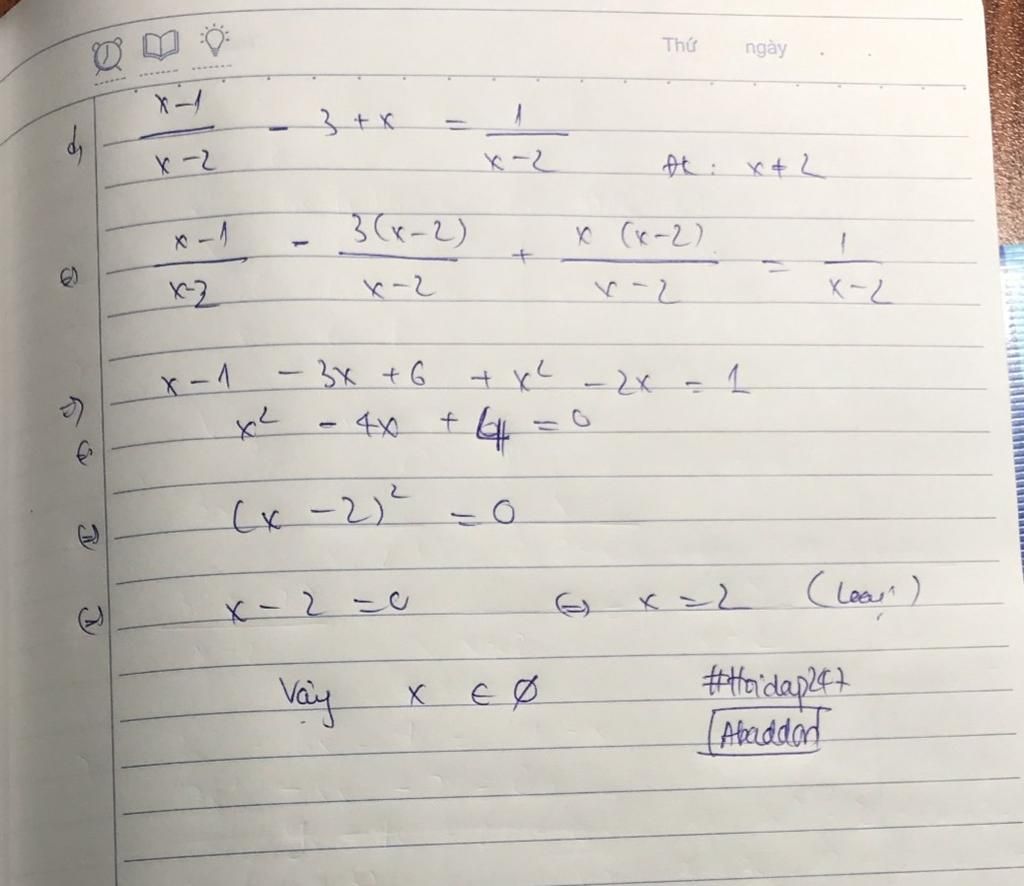 Thứ ngày . .
d, \frac{x-1}{x-2} - 3 + x = \frac{1}{x-2} đk : x ≠ 2
⇔ \frac{x-1}{x-2} - \frac{3(x-2)}{x-2} + \frac{x (x-2)}{x-2} = \frac{1}{x-2}
⇒ x-1 - 3x + 6 + x² - 2x = 1
⇔ x² - 4x + 4 = 0
⇔ (x - 2)² = 0
⇔ x - 2 = 0 ⇔ x = 2 (loại)
Vậy x ∈ ∅
#Hoidap247
Abaddon